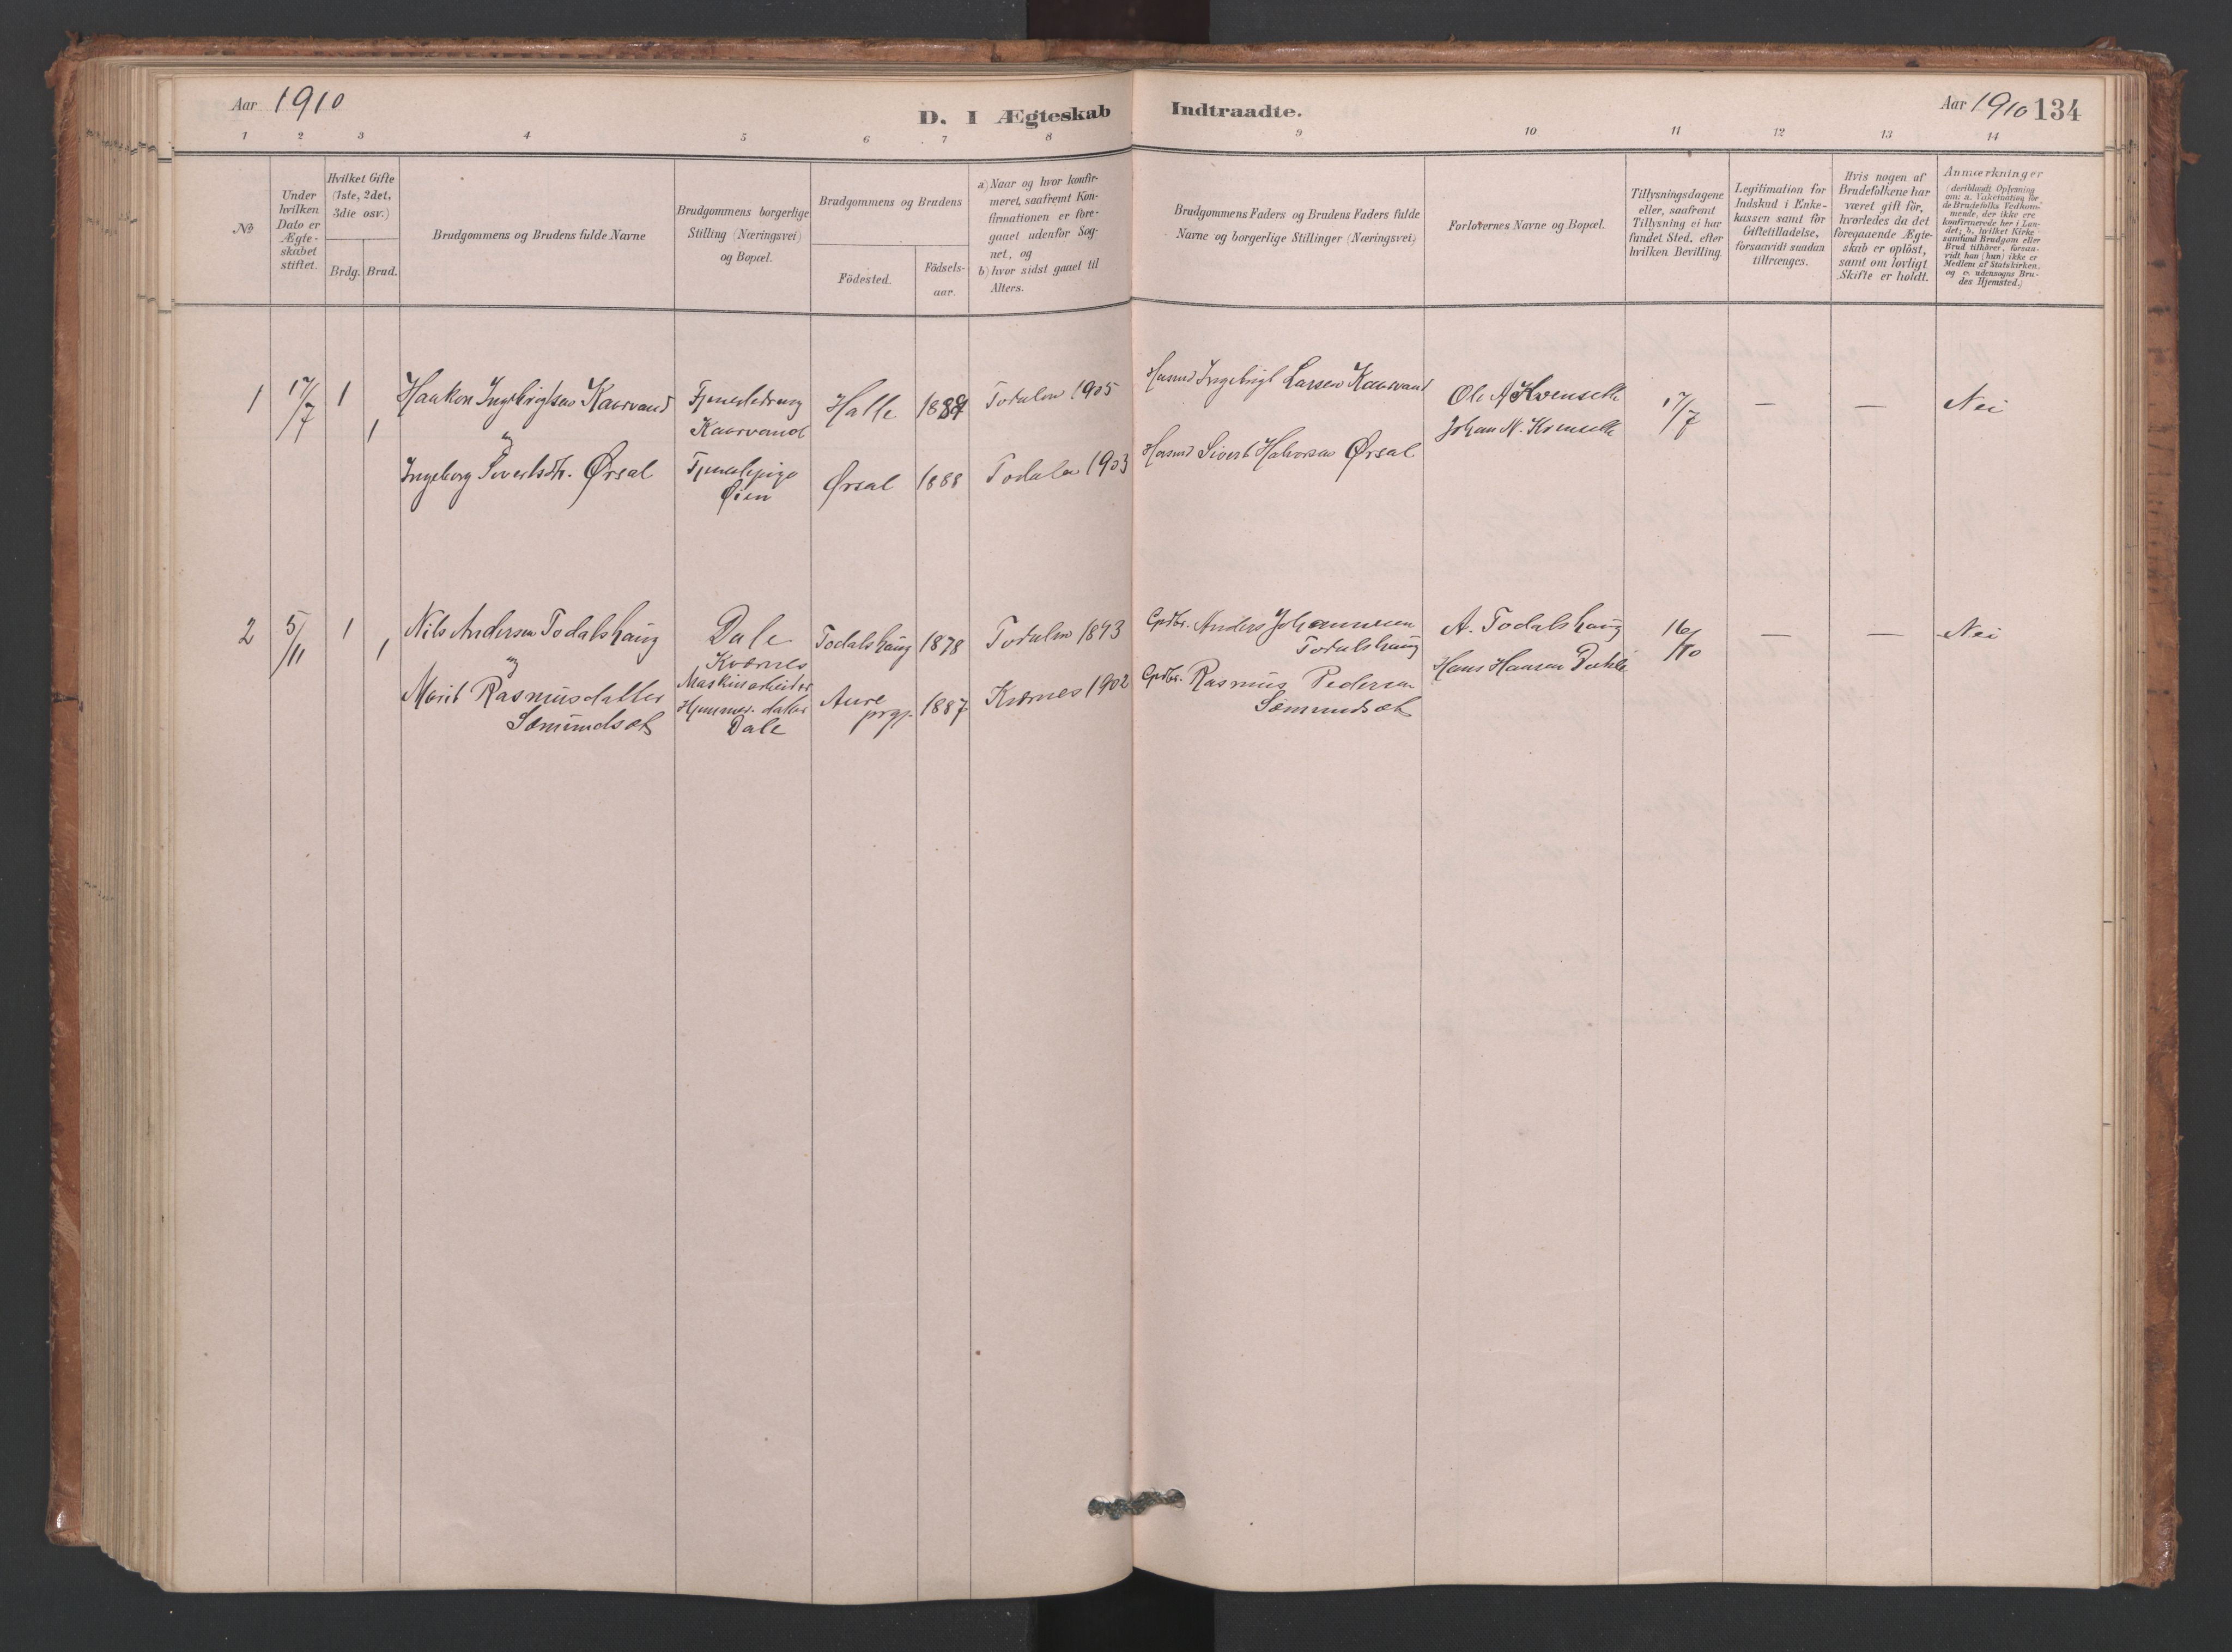 Aar 1910
D. I Ægteskab Indtraadte.
Aar 1910 134
1 2 3 4 5 6 7 8 9 10 11 12 13 14
No
Under hvilken Dato er Ægte-skabet stiftet.
Hvilket Gifte (1ste, 2det, 3die osv.)
Brdg. Brud.
Brudgommens og Brudens fulde Navne
Brudgommens borgerlige Stilling (Næringsvei) og Bopæl.
Brudgommens og Brudens
Födested.
Födsels-aar.
a) Naar og hvor konfir-meret, saafremt Kon-firmationen er fore-gaaet udenfor Sog-net, og
b) hvor sidst gaaet til Alters.
Brudgommens Faders og Brudens Faders fulde Navne og borgerlige Stillinger (Næringsvei)
Forlovernes Navne og Bopæl.
Tillysningsdagene eller, saafremt Tillysning ei har fundet Sted, efter hvilken Bevilling.
Legitimation for Indskud i Enke-kassen samt for Giftetilladelse, forsaavidt saadan tiltrænges.
Hvis nogen af Brudefolkene har været gift för, hvorledes da det foregaaende Ægte-skab er oplöst, samt om lovligt Skifte er holdt.
Anmærkninger
(deriblandt Oplysning om: a. Vakcination for de Brudefolks Vedkom-mende, der ikke ere konfirmerede her i Lan-det; b. hvilket Kirke-samfund Brudgom eller Brud tilhörer, forsaa-vidt han (hun) ikke er Medlem af Statskirken, og c. udensogns Bru-des Hjemsted.)
1 17/7 1 Haakon Ingebrigtsen Kaarvand Tjenestedreng Kaarvand Halle 1889 Todalen 1905 Husmd Ingebrigt Larsen Kaarvand Ole A Kvenseth 17/7 — — Nei
Johan N. Kvensetk
1 og
Ingeborg Sivertsdtr. Ørsal Tjenestepige Øien Ørsal 1888 Todalen 1903 Husmd Sivert Halvorsen Ørsal
2 5/11 1 Nils Andersen Todalshaug Dale Kværnes Maskinarbeider Todalshaug 1878 Todalen 1893 Grdbr. Anders Johannesen Todalshaug A. Todalshaug 16/10 — — Nei
Hans Hansen Dahle
1 og
Marit Rasmusdatter Sæmundsæt Hjemmev. datter Dale Aure prgj. 1887 Kværnes 1902 Grdbr. Rasmus Pedersen Sæmundsæt